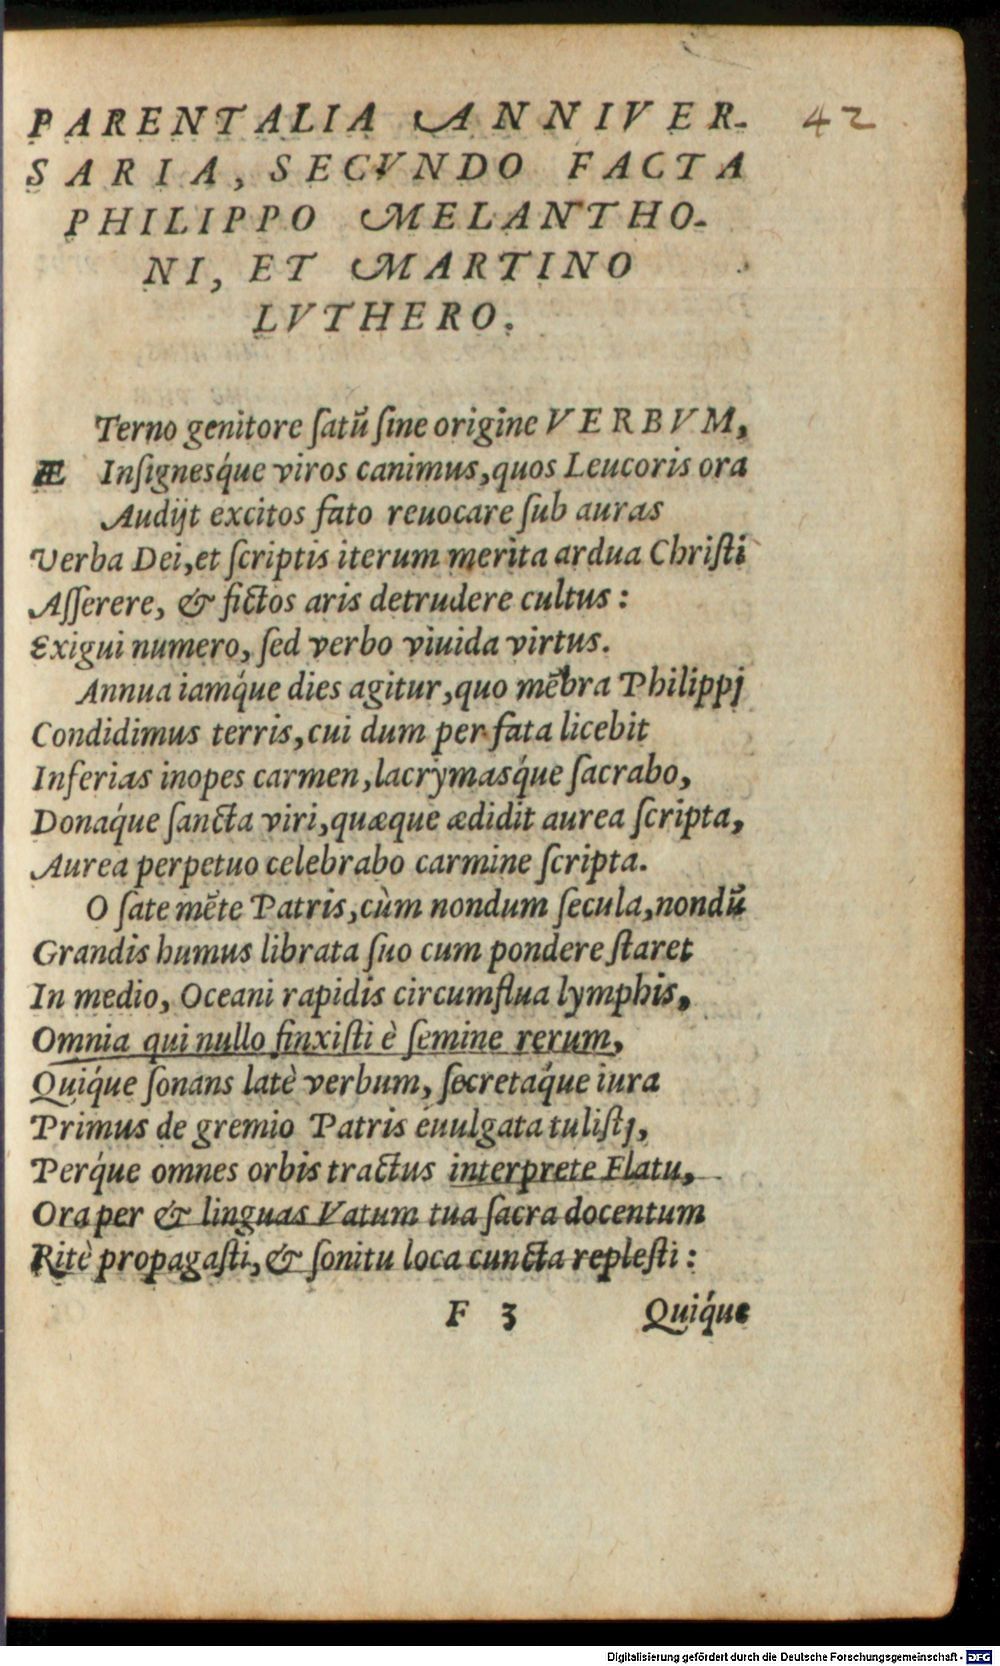 PARENTALIA ANNIVER-
42
SARIA, SECVNDO FACTA
PHILIPPO MELANTHO-
NI, ET MARTINO
LVTHERO.
Terno genitore ſatũ ſine origine VERBVM,
Æ Inſignesq́ue viros canimus, quos Leucoris ora
Audijt excitos fato reuocare ſub auras
Verba Dei, et ſcriptis iterum merita ardua Chriſti
Aſſerere, & fictos aris detrudere cultus:
Exigui numero, ſed verbo viuida virtus.
Annua iamq́ue dies agitur, quo mẽbra Philippj
Condidimus terris, cui dum per fata licebit
Inferias inopes carmen, lacrymasq́ue ſacrabo,
Donaq́ue ſancta viri, quæque ædidit aurea ſcripta,
Aurea perpetuo celebrabo carmine ſcripta.
O ſate mẽte Patris, cùm nondum ſecula, nondũ
Grandis humus librata ſuo cum pondere ſtaret
In medio, Oceani rapidis circumflua lymphis,
Omnia qui nullo finxiſti è ſemine rerum,
Quiq́ue ſonans latè verbum, ſecretaq́ue iura
Primus de gremio Patris euulgata tuliſtj,
Perq́ue omnes orbis tractus interprete Flatu,
Ora per & linguas Vatum tua ſacra docentum
Ritè propagaſti, & ſonitu loca cuncta repleſti:
F 3 Quiq́ue
Digitalisierung gefördert durch die Deutsche Forschungsgemeinschaft - DFG